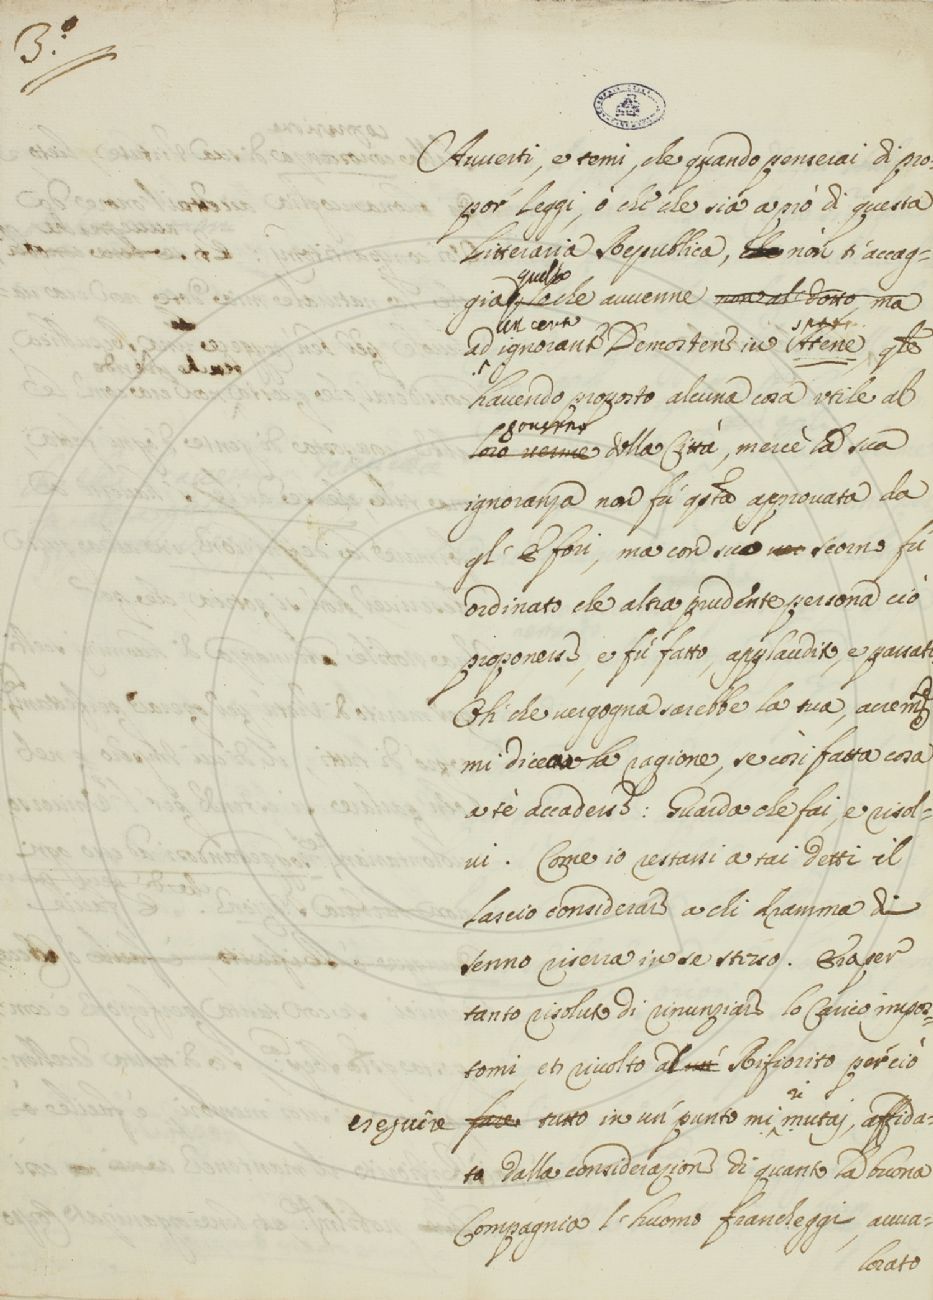 3.º
Avverti, e temi, che quando penserai di pro-
por leggi, ò chi che sia a prò di questa
Litteraria Republica, che non t'accag-
gia quello che avvenne non al dotto, ma
ad un certo ignorante Demostene in Atene, q͞le
havendo proposto alcuna cosa utile al
loro governo della Città, mercè la sua
ignoranza non fù q͞sta approvata da
gl' Efori, ma con suo scorno fù
ordinato che altra prudente persona ciò
proponesse, e fù fatto, applaudito, e passato
Oh' che vergogna sarebbe la tua,
mi dicea la ragione, se così fatta cosa
a tè accadesse: Guarda che fai, e risol-
vi. Come io restassi a tai detti il
lascio considerare a chi dramma di
senno riserva in se stesso. Era per
tanto risoluto di rinunziare lo Carico impos-
tomi, et rivolto al Rifiorito per ciò
eseguire fare tutto in un' punto mi ri mutaj, affida-
ta dalla considerazione di quanto la buona
Compagnia l'huomo francheggi, avva-
lorato